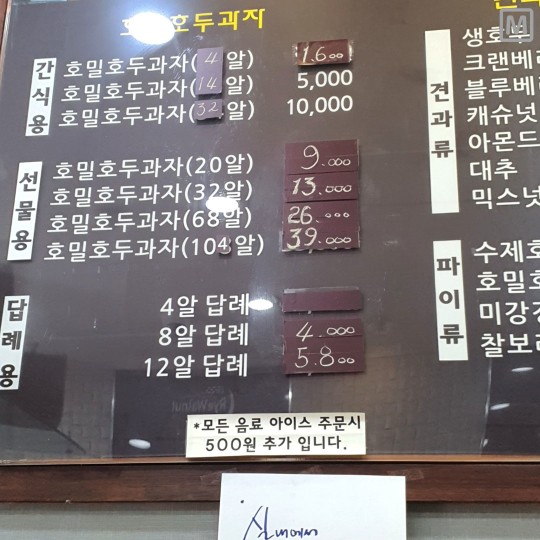 호밀호두과자
간식용
호밀호두과자(4알) 1.600
호밀호두과자(14알) 5,000
호밀호두과자(32알) 10,000
선물용
호밀호두과자(20알) 9.000
호밀호두과자(32알) 13.000
호밀호두과자(68알) 26.000
호밀호두과자(104알) 39.000
답례용
4알 답례
8알 답례 4.000
12알 답례 5.800
*모든 음료 아이스 주문시
500원 추가 입니다.
견과류
생호두
크랜베리
블루베리
캐슈넛
아몬드
대추
믹스넛
파이류
수제호
호밀호
미강
찰보리
M